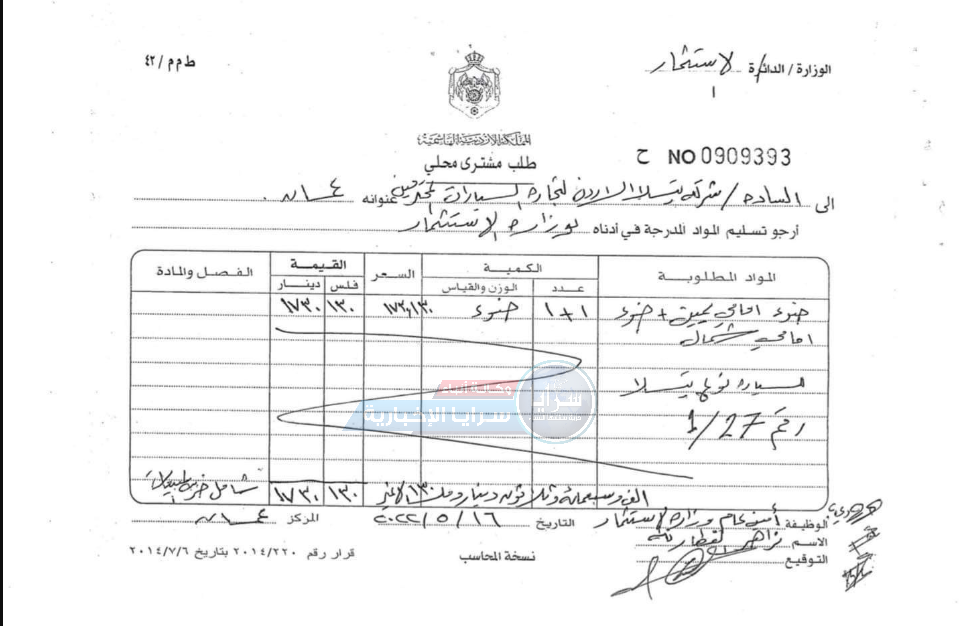 ط م م / ٤٢
الوزارة / الدائرة الاستثمار
المملكة الأردنية الهاشمية
طلب مشترى محلي
ح NO 0909393
الى الساده / شركة تيسلا الاردن لتجارة السيارات عنوانه عمان
أرجو تسليم المواد المدرجة في أدناه لوزارة الاستثمار
المواد المطلوبة
الكمية
عدد
الوزن والقياس
السعر
القيمة
فلس
دينار
الفصل والمادة
ضوء امامي يمين + ضوء
١+١
ضوء
١٣٠
١٧٣٠
امامي شمال
للسياره نوع تيسلا
رقم 27/1
وكالة أنباء
سرايا الإخبارية
سرايا
الف وسبعمائة وثلاثون دينار و ١٣٠ لاغير
١٣٠
١٧٣٠
شامل ضريبة المبيعات
الوظيفة أمين عام وزارة الاستثمار
التاريخ ١٦ / ٥ / ٢٠٢٢
المركز عمان
الاسم زاهر القطارنة
التوقيع
نسخة المحاسب
قرار رقم ٢٠١٤/٢٢٠ بتاريخ ٢٠١٤/٧/٦